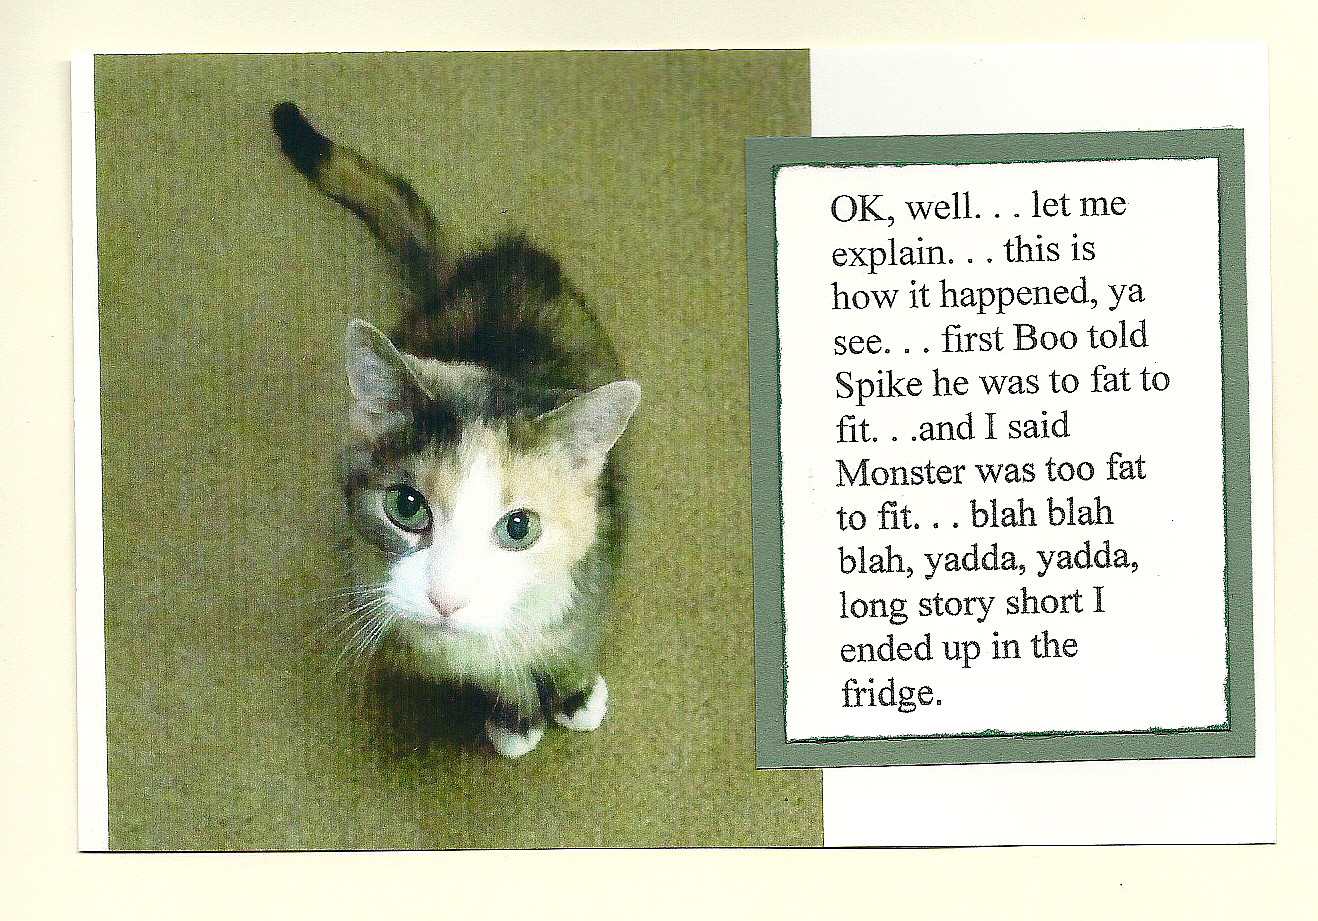 OK, well. . . let me
explain. . . this is
how it happened, ya
see. . . first Boo told
Spike he was to fat to
fit. . .and I said
Monster was too fat
to fit. . . blah blah
blah, yadda, yadda,
long story short I
ended up in the
fridge.